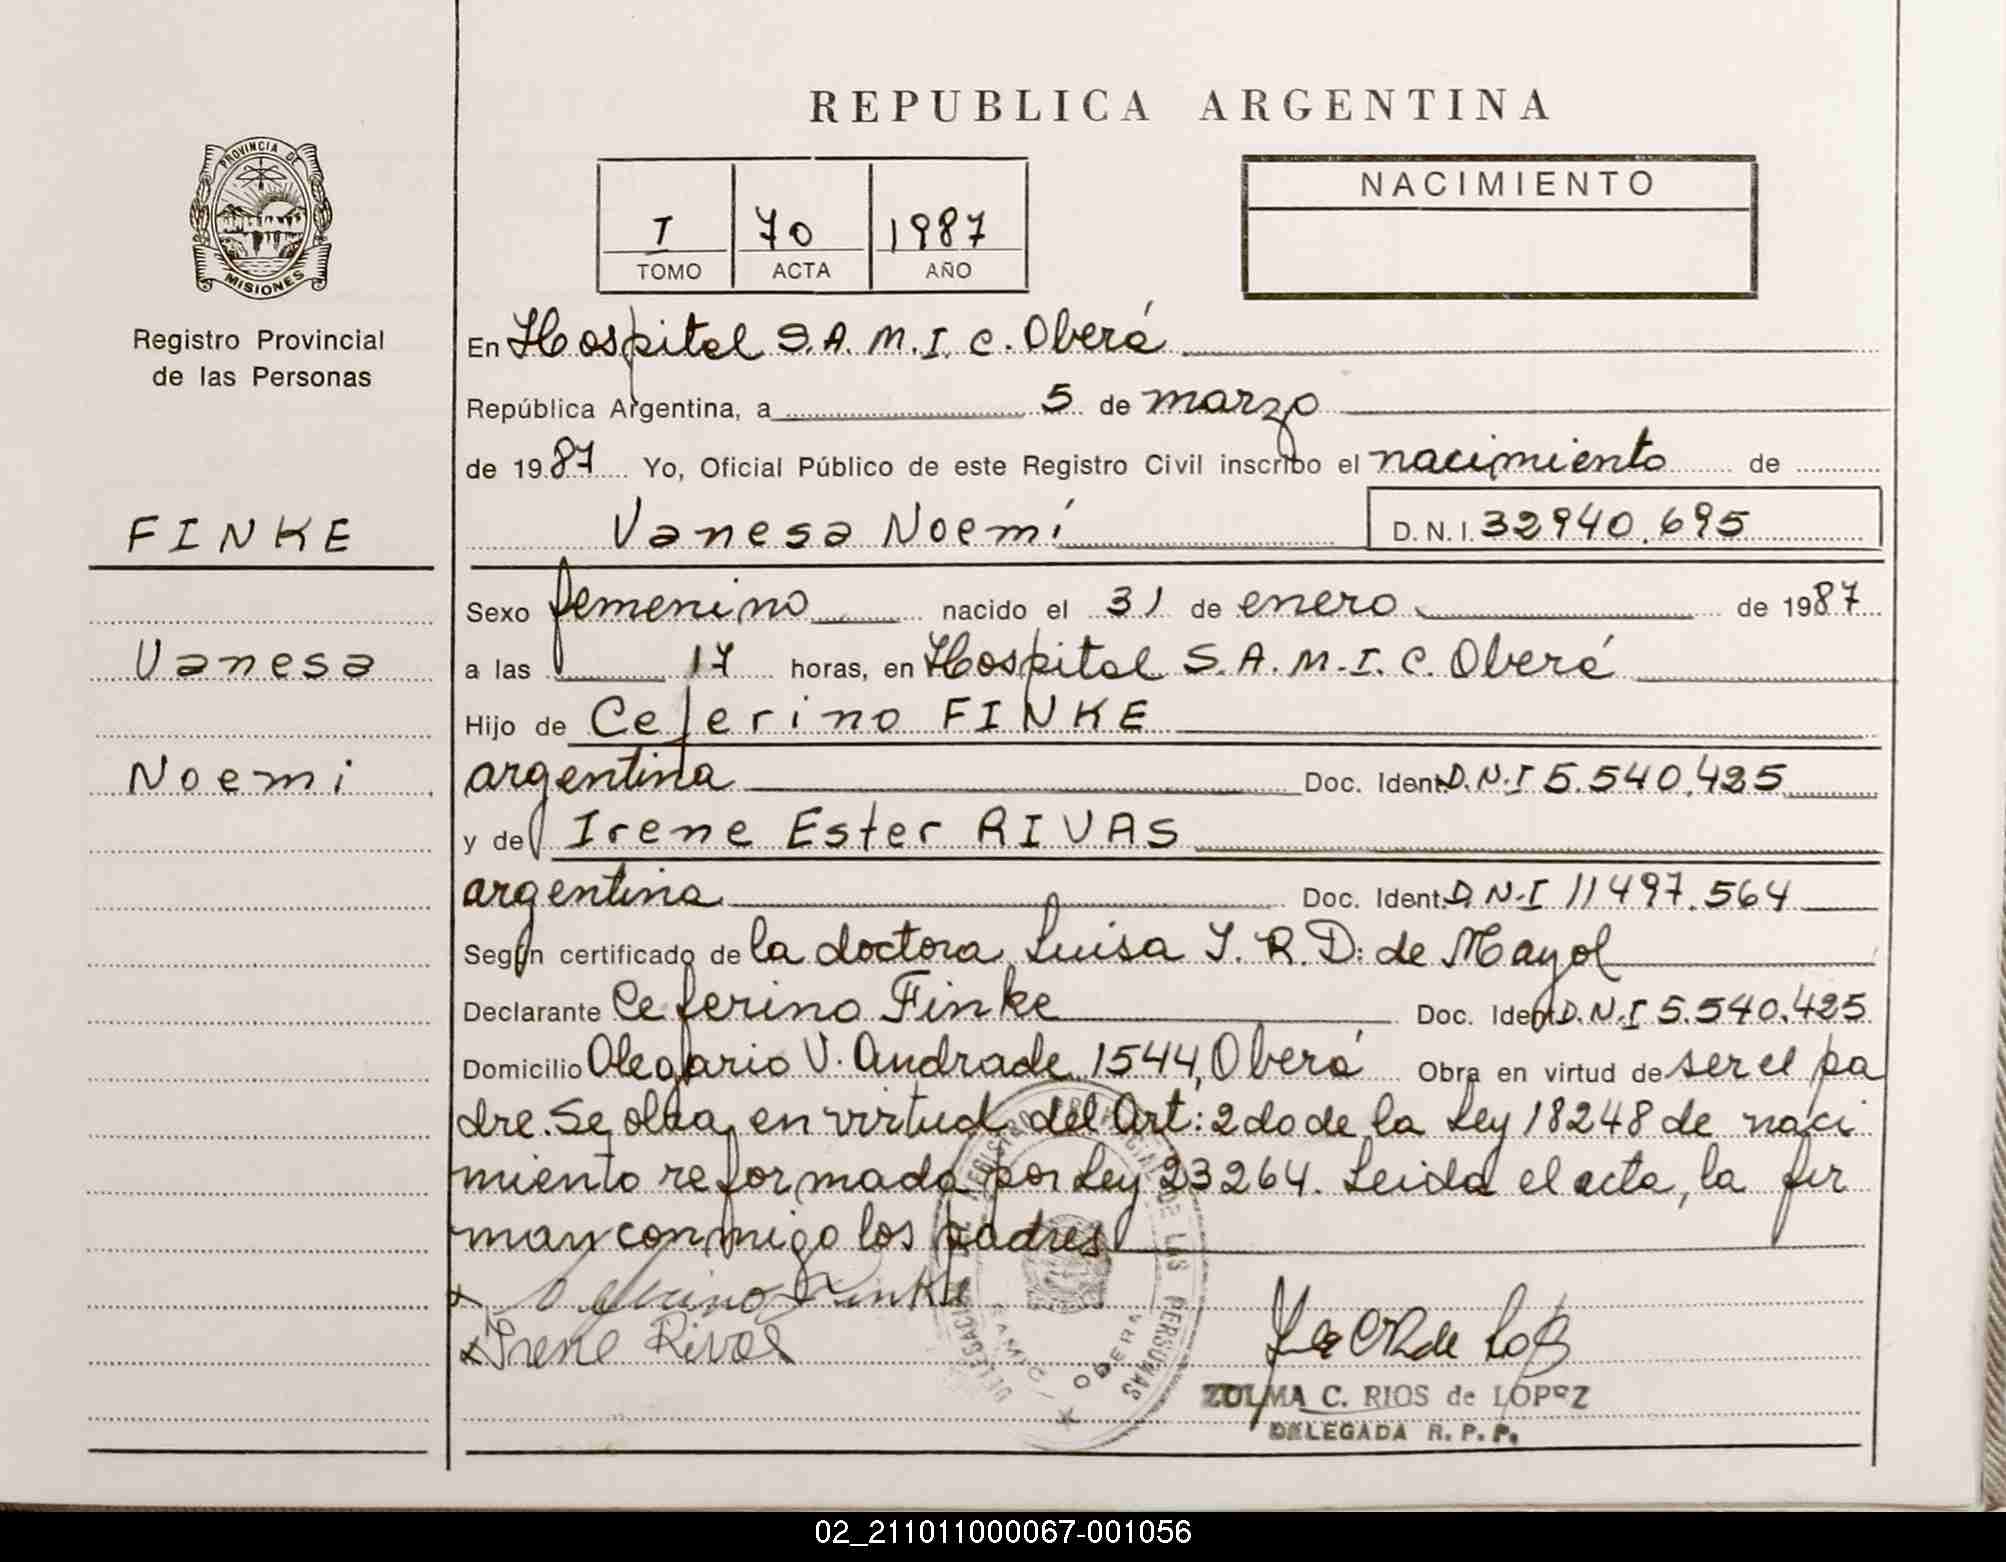 REPUBLICA ARGENTINA
PROVINCIA DE
MISIONES
Registro Provincial
de las Personas
I 70 1987
TOMO ACTA AÑO
NACIMIENTO
En Hospital S.A.M.I.C. Oberá
República Argentina, a 5 de marzo
de 1987 Yo, Oficial Público de este Registro Civil inscribo el nacimiento de
Vanesa Noemí D.N.I. 32940.695
FINKE
Vanesa
Noemi
Sexo femenino nacido el 31 de enero de 1987
a las 17 horas, en Hospital S.A.M.I.C. Oberá
Hijo de Ceferino FINKE
argentina Doc. Ident. D.N.I 5.540.425
y de Irene Ester RIVAS
argentina Doc. Ident. D.N.I 11497.564
Según certificado de la doctora Luisa J. R. D. de Mayol
Declarante Ceferino Finke Doc. Ident. D.N.I 5.540.425
Domicilio Olegario V. Andrade 1544, Oberá Obra en virtud de ser el pa
dre. Se obra en virtud del Art: 2do de la Ley 18248 de naci
miento reformada por Ley 23264. Leida el acta, la fir
man conmigo los padres
x Ceferino Finke
x Irene Rivas
DELEGACION REGISTRO PROVINCIAL DE LAS PERSONAS
SAMIC OBERA
ZULMA C. RIOS de LOPEZ
DELEGADA R. P. P.
02_211011000067-001056